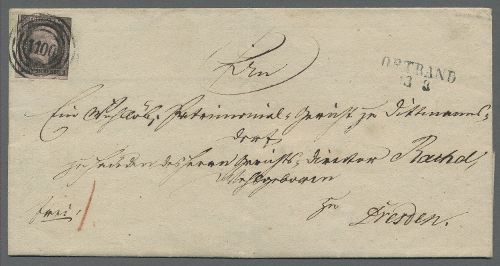 1100
ORTRAND
13 3
An
Ein Wohllöb. Patrimonial-Gericht zu Dittmanns-
dorf,
zu Händen des Herrn Gerichts-Director
Wohlgeboren
frei,
zu
Dresden.